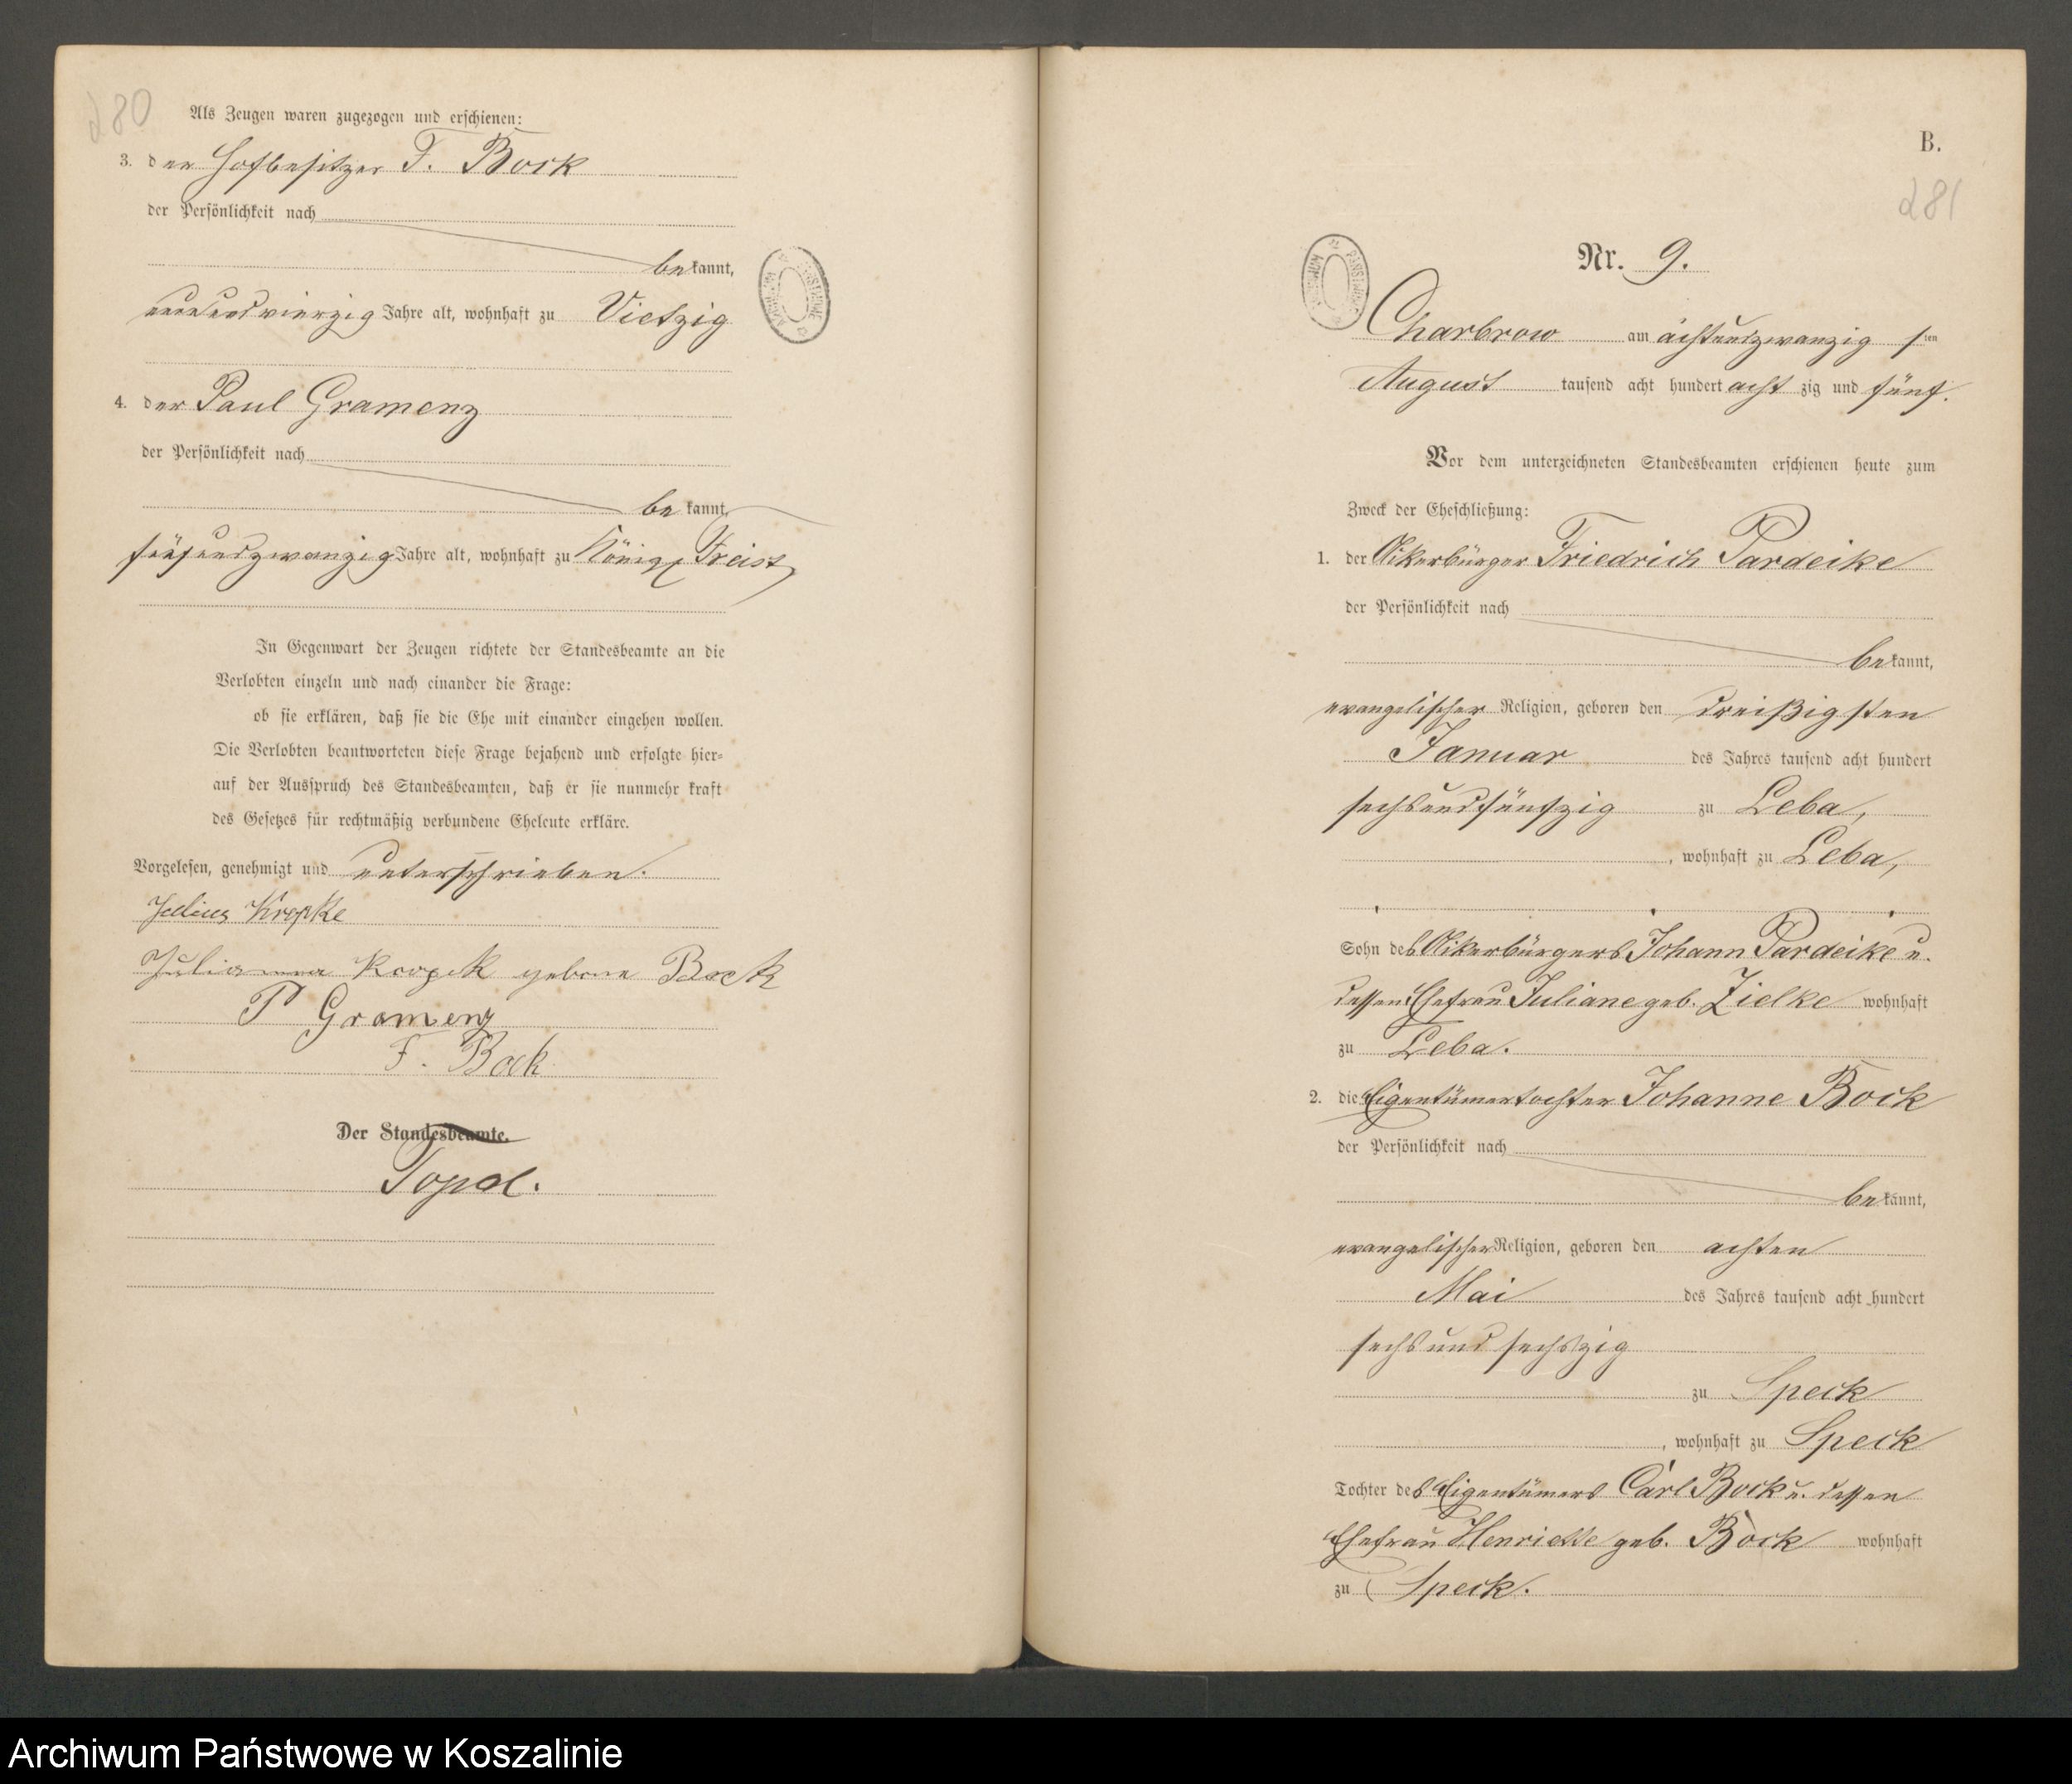 280
Als Zeugen waren zugezogen und erschienen:
3. der Hofbesitzer F. Bock
der Persönlichkeit nach
bekannt,
neunundvierzig Jahre alt, wohnhaft zu Vietzig
4. der Paul Gramenz
der Persönlichkeit nach
bekannt,
fünfundzwanzig Jahre alt, wohnhaft zu Königl Freist
In Gegenwart der Zeugen richtete der Standesbeamte an die
Verlobten einzeln und nach einander die Frage:
ob sie erklären, daß sie die Ehe mit einander eingehen wollen.
Die Verlobten beantworteten diese Frage bejahend und erfolgte hier-
auf der Ausspruch des Standesbeamten, daß er sie nunmehr kraft
des Gesetzes für rechtmäßig verbundene Eheleute erkläre.
Vorgelesen, genehmigt und unterschrieben.
Julius
geborne Bock
P Gramenz
F. Bock
Der Standesbeamte.
B.
281
Nr. 9.
Charbrow am achtundzwanzigsten
August tausend acht hundert achtzig und fünf.
Vor dem unterzeichneten Standesbeamten erschienen heute zum
Zweck der Eheschließung:
1. der Ackerbürger Friedrich Pardeike
der Persönlichkeit nach
bekannt,
evangelischer Religion, geboren den dreißigsten
Januar des Jahres tausend acht hundert
sechsundfünfzig zu Leba,
, wohnhaft zu Leba,
Sohn des Ackerbürgers Johann Pardeike u.
dessen Ehefrau Juliane geb. Zielke wohnhaft
zu Leba.
2. die Eigentümertochter Johanne Bock
der Persönlichkeit nach
bekannt,
evangelischer Religion, geboren den achten
Mai des Jahres tausend acht hundert
sechsundsechszig
zu Speck
, wohnhaft zu Speck
Tochter des Eigentümers Carl Bock u. dessen
Ehefrau Henriette geb. Bock wohnhaft
zu Speck.
Archiwum Państwowe w Koszalinie